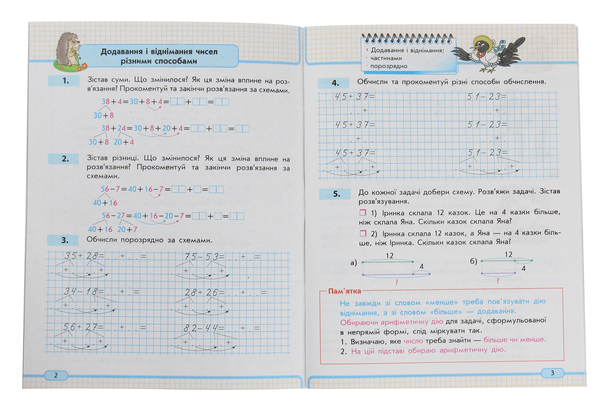 Додавання і віднімання чисел
різними способами
1. Зістав суми. Що змінилося? Як ця зміна вплине на роз-
в'язання? Прокоментуй та закінчи розв'язання за схемами.
38+4=30+8+4=□□+□□=□□
30+8
38+24=30+8+20+4=□□+□□=□□
30+8 20+4
2. Зістав різниці. Що змінилося? Як ця зміна вплине на
розв'язання? Прокоментуй та закінчи розв'язання за
схемами.
56-7=40+16-7=□□+□=□□
40+16
56-27=40+16-20-7=□□+□=□□
40+16 20+7
3. Обчисли порозрядно за схемами.
35+28= + = 75-53= + =
34-18= + = 28+26= + =
56+27= + = 82-44= + =
2
Додавання і віднімання:
· частинами
· порозрядно
4. Обчисли та прокоментуй різні способи обчислення.
45+37= 51-23=
45+37= 51-23=
45+37= 51-23=
5. До кожної задачі добери схему. Розв'яжи задачі. Зістав
розв'язування.
1) Іринка склала 12 казок. Це на 4 казки більше,
ніж склала Яна. Скільки казок склала Яна?
2) Іринка склала 12 казок, а Яна — на 4 казки біль-
ше, ніж Іринка. Скільки казок склала Яна?
а) 12 4 ? б) 12 4 ?
Пам'ятка
Не завжди зі словом «менше» треба пов'язувати дію
віднімання, а зі словом «більше» — додавання.
Обираючи арифметичну дію для задачі, сформульованої
в непрямій формі, слід міркувати так.
1. Визначаю, яке число треба знайти — більше чи менше.
2. На цій підставі обираю арифметичну дію.
3